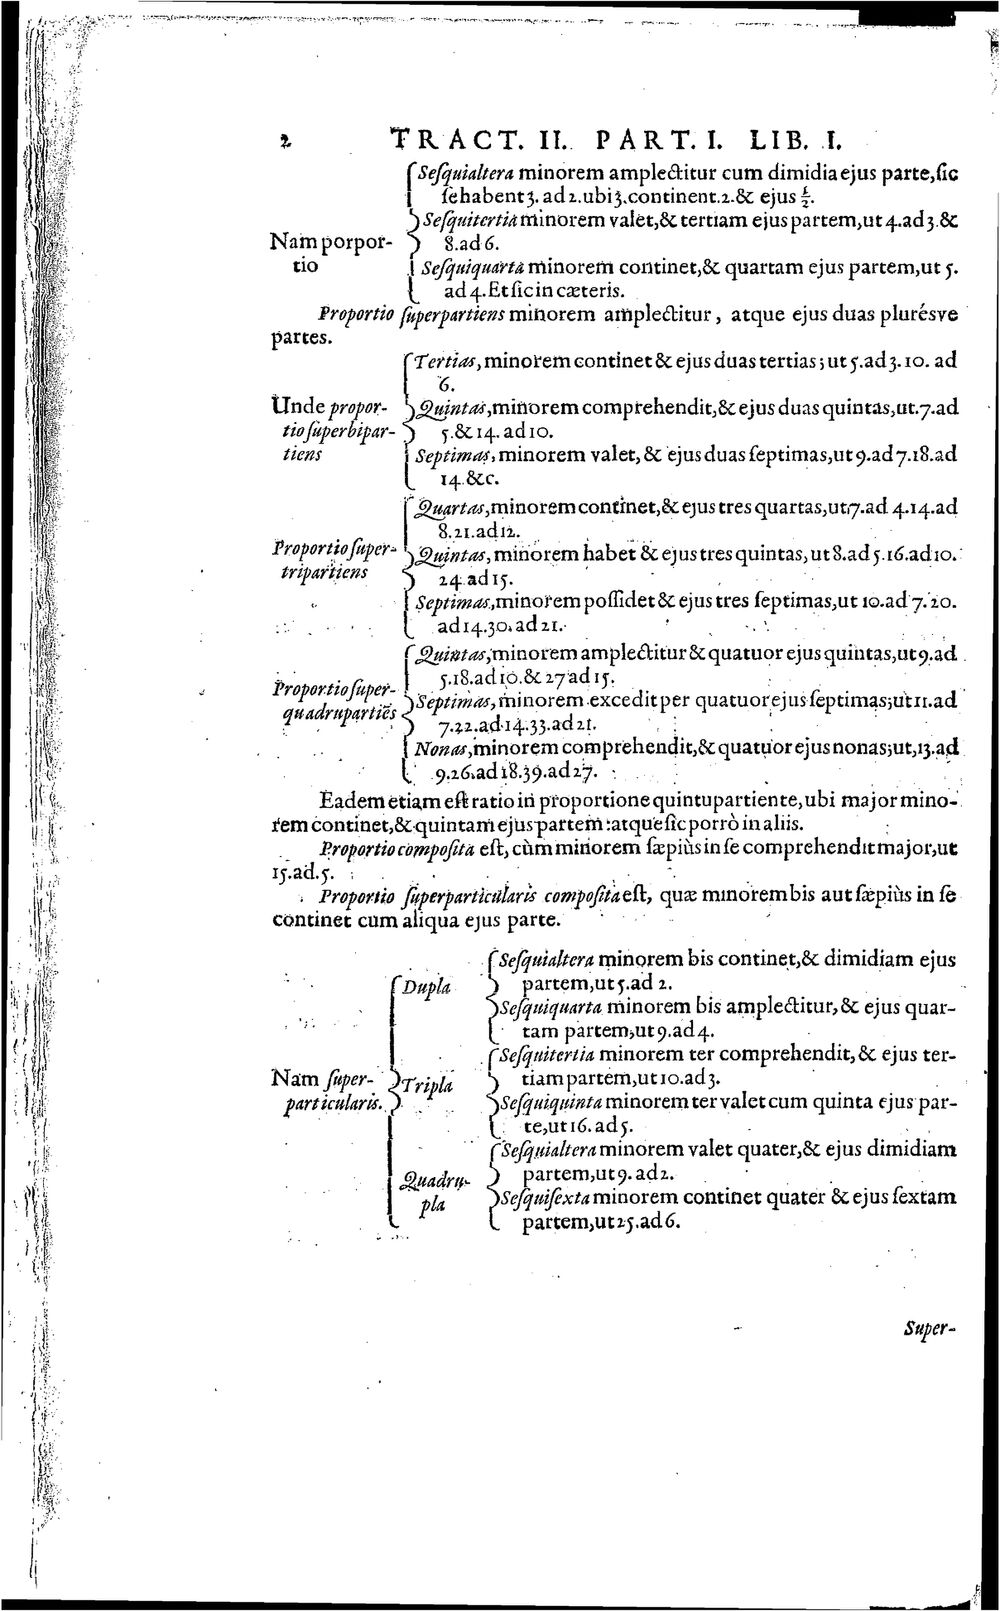 2 TRACT. II. PART. I. LIB. I.
Seſquialtera minorem amplectitur cum dimidia ejus parte, ſic
ſe habent 3. ad 2. ubi 3. continent. 2. & ejus ½.
Seſquitertia minorem valet, & tertiam ejus partem, ut 4. ad 3. &
Nam porpor- 8. ad 6.
tio Seſquiquarta minorem continet, & quartam ejus partem, ut 5.
ad 4. Et ſic in cæteris.
Proportio ſuperpartiens minorem amplectitur, atque ejus duas pluréſve
partes.
Tertias, minorem continet & ejus duas tertias; ut 5. ad 3. 10. ad
6.
Unde propor- Quintas, minorem comprehendit, & ejus duas quintas, ut. 7. ad
tio ſuperbipar- 5. & 14. ad 10.
tiens Septimas, minorem valet, & ejus duas ſeptimas, ut 9. ad 7. 18. ad
14. &c.
Quartas, minorem continet, & ejus tres quartas, ut, 7. ad 4. 14. ad
8. 21. ad 12.
Proportio ſuper- Quintas, minorem habet & ejus tres quintas, ut 8. ad 5. 16. ad 10.
tripartiens 24 ad 15.
Septimas, minorem poſſidet & ejus tres ſeptimas, ut 10. ad 7. 20.
ad 14. 30. ad 21.
Quintas, minorem amplectitur & quatuor ejus quintas, ut 9. ad
5. 18. ad 10. & 27 ad 15.
Proportio ſuper- Septimas, minorem excedit per quatuor ejus ſeptimas; ut 11. ad
quadrupartiēs 7. 22. ad 14. 33. ad 21.
Nonas, minorem comprehendit, & quatuor ejus nonas; ut, 13. ad
9. 26. ad 18. 39. ad 27.
Eadem etiam eſt ratio in proportione quintupartiente, ubi major mino-
rem continet, & quintam ejus partem: atque ſic porrò in aliis.
Proportio compoſita eſt, cùm minorem ſæpiùs in ſe comprehendit major, ut
15. ad. 5.
Proportio ſuperparticularis compoſita eſt, quæ minorem bis aut ſæpiùs in ſe
continet cum aliqua ejus parte.
Seſquialtera minorem bis continet, & dimidiam ejus
Dupla partem, ut 5. ad 2.
Seſquiquarta minorem bis amplectitur, & ejus quar-
tam partem, ut 9. ad 4.
Seſquitertia minorem ter comprehendit, & ejus ter-
Nam ſuper- Tripla tiam partem, ut 10. ad 3.
particularis. Seſquiquinta minorem ter valet cum quinta ejus par-
te, ut 16. ad 5.
Seſquialtera minorem valet quater, & ejus dimidiam
Quadru- partem, ut 9. ad 2.
pla Seſquiſexta minorem continet quater & ejus ſextam
partem, ut 25. ad 6.
Super-